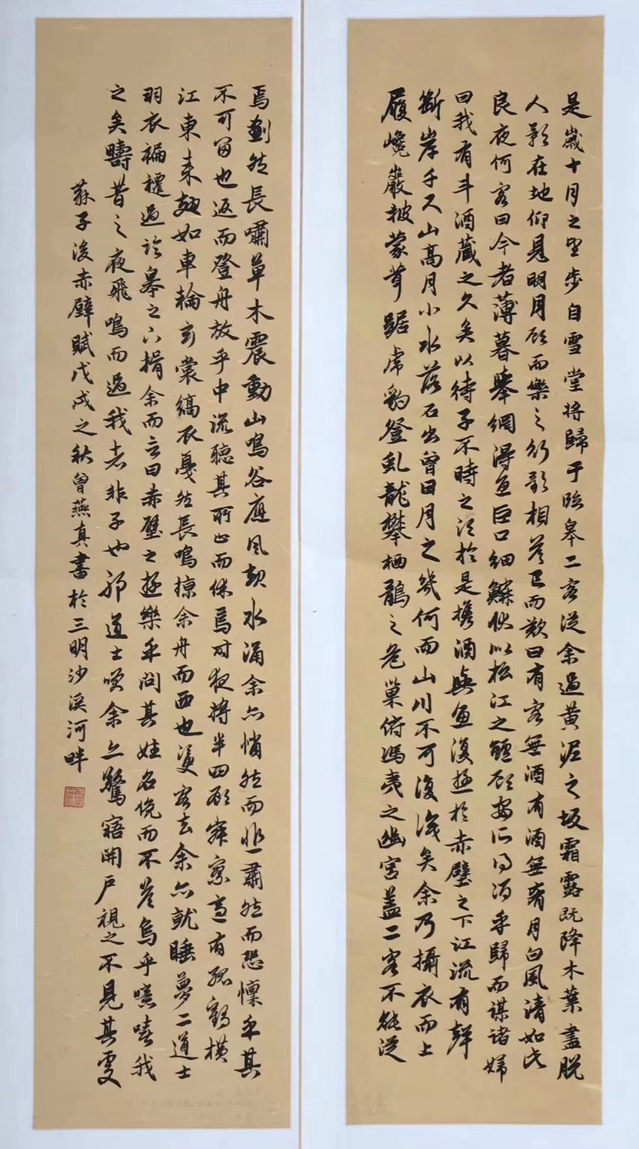 是歲十月之望步自雪堂將歸于臨皋二客從余過黃泥之坂霜露既降木葉盡脫
人影在地仰見明月顧而樂之行歌相答已而歎曰有客無酒有酒無肴月白風清如此
良夜何客曰今者薄暮舉網得魚巨口細鱗狀似松江之鱸顧安所得酒乎歸而謀諸婦
曰我有斗酒藏之久矣以待子不時之須於是攜酒與魚復遊於赤壁之下江流有聲
斷岸千尺山高月小水落石出曾日月之幾何而山川不可復識矣余乃攝衣而上
履巉巖披蒙茸踞虎豹登虬龍攀栖鶻之危巢俯馮夷之幽宮蓋二客不能從
焉劃然長嘯草木震動山鳴谷應風起水涌余亦悄然而悲肅然而恐懍乎其
不可留也返而登舟放乎中流聽其所止而休焉時夜將半四顧寂寥適有孤鶴橫
江東來翅如車輪玄裳縞衣戛然長鳴掠余舟而西也臾客去余亦就睡夢二道士
羽衣蹁躚過臨皋之下揖余而言曰赤壁之遊樂乎問其姓名俛而不答烏乎噫嘻我
之矣疇昔之夜飛鳴而過我者非子也耶道士笑余亦驚寤開戶視之不見其處
蘇子後赤壁賦戊戌之秋曾燕真書於三明沙溪河畔